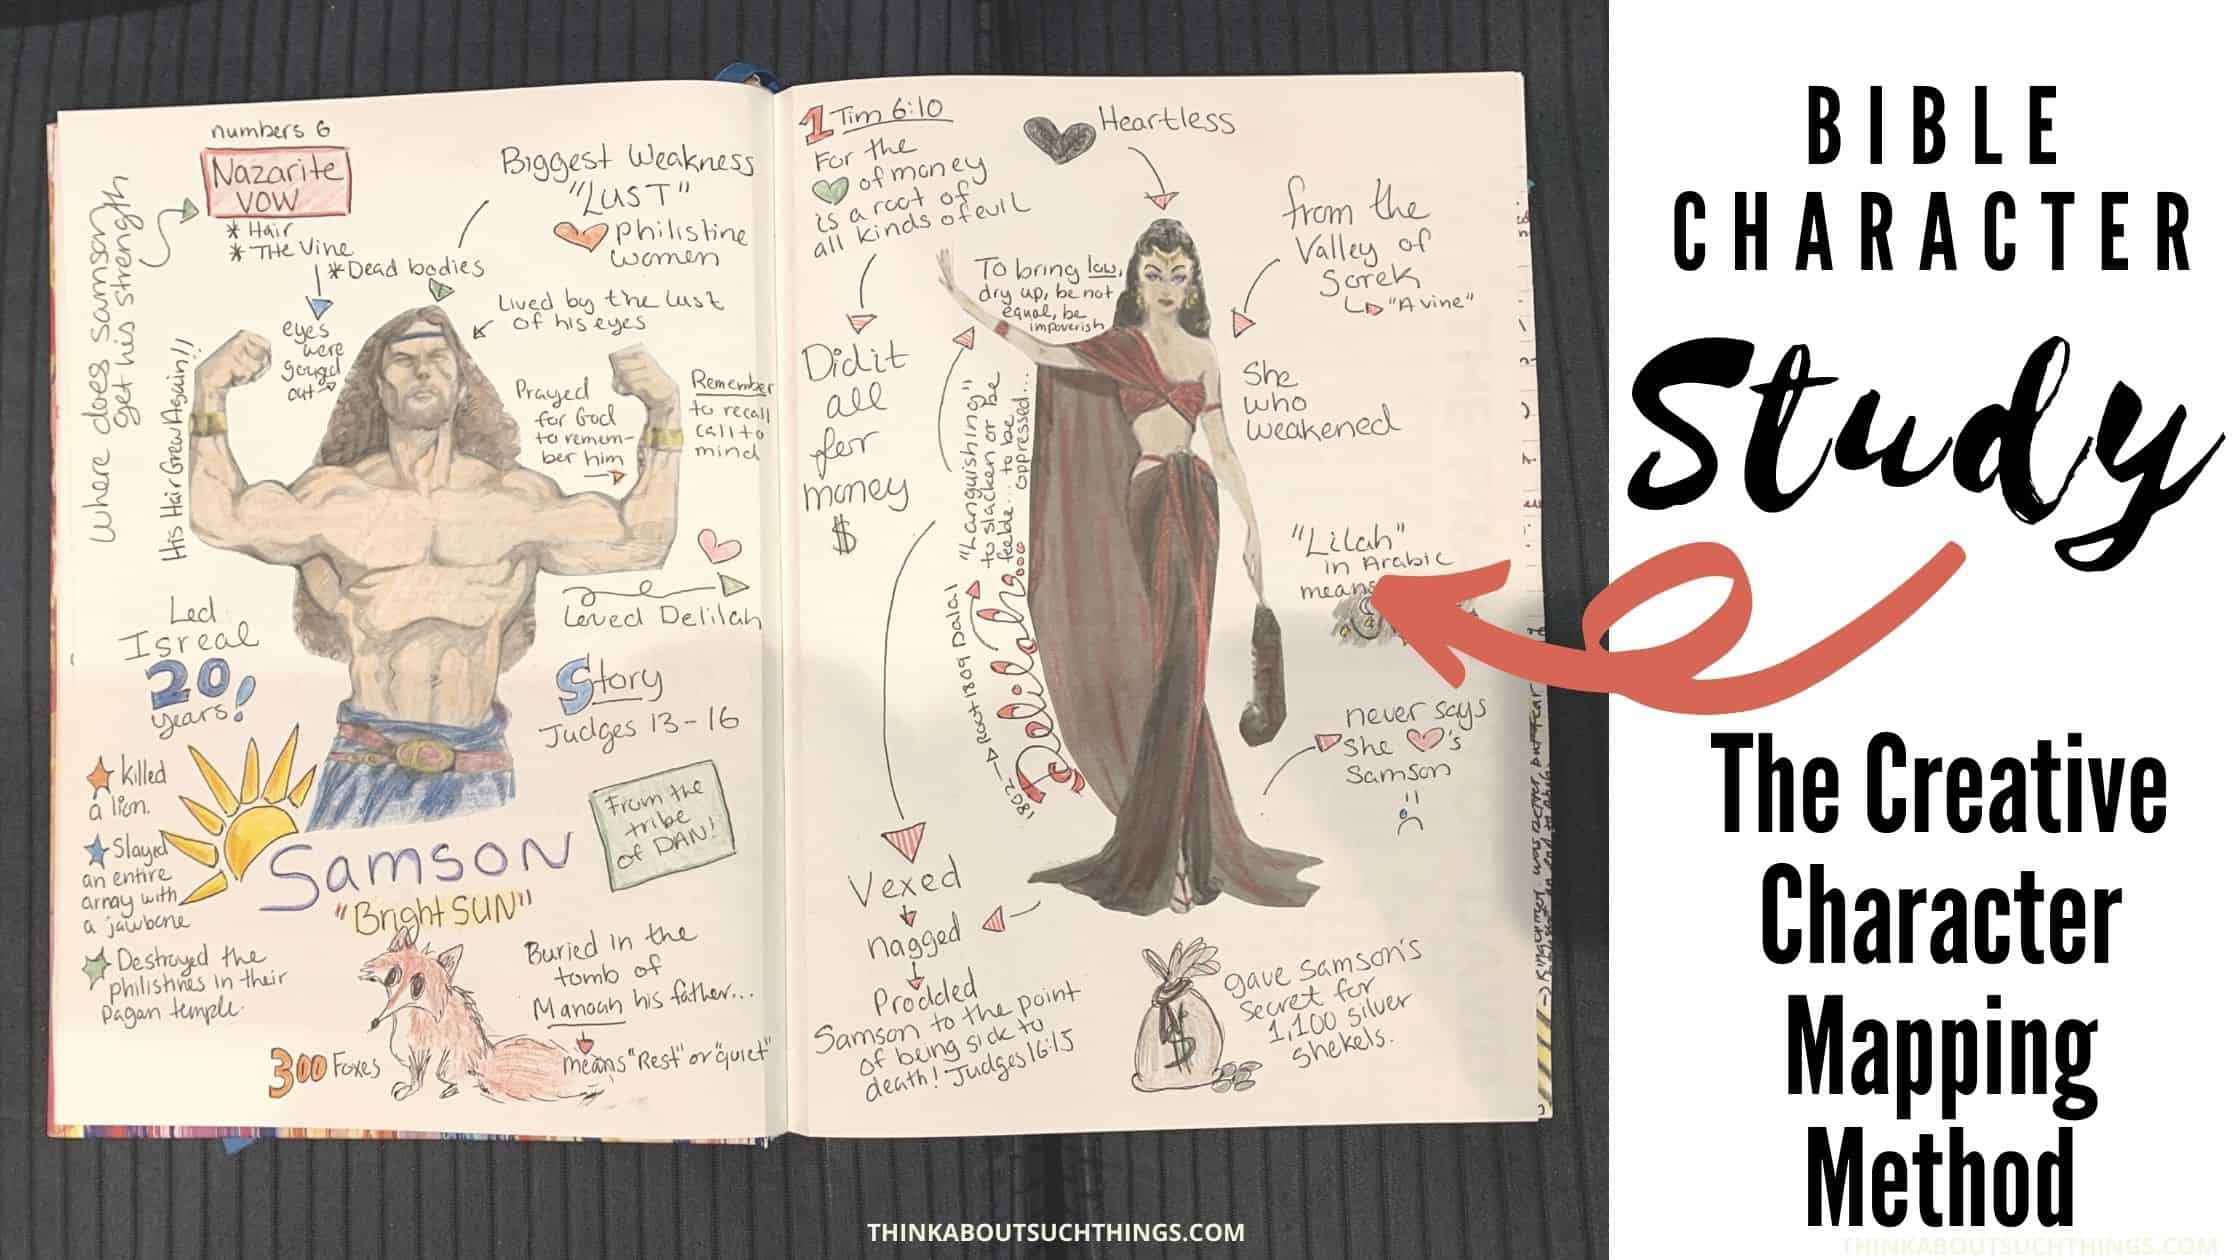 numbers 6
Nazarite
VOW
* Hair
* THE Vine
* Dead bodies
Where does samson
get his strength
Biggest Weakness
"LUST"
philistine
women
Lived by the lust
of his eyes
eyes
were
gouged
out
His Hair Grew Again!!
Prayed
for God
to remem-
ber him
Remember
to recall
call to
mind
Led
Isreal
20
years!
Loved Delilah
Story
Judges 13-16
killed
a lion.
Slayed
an entire
array with
a jawbone
Destroyed the
philistines in their
pagan temple.
From the
tribe
of DAN!
Samson
"Bright SUN"
300 Foxes
Buried in the
tomb of
Manoah his father...
means "Rest" or "quiet"
1 Tim 6:10
For the
of money
is a root of
all kinds of evil
Heartless
from the
Valley of
Sorek
"A vine"
To bring low,
dry up, be not
equal, be
impoverish
Did it
all
for
money
$
She
who
weakened
"Languishing"
to slacken or be
feeble... to be
oppressed...
1802 Root 1809 Dalal
Delilah...
"Lilah"
in Arabic
means
never says
she 's
Samson
Vexed
nagged
Prodded
Samson to the point
of being sick to
death! Judges 16:15
$
gave samson's
secret for
1,100 silver
shekels.
BIBLE
CHARACTER
Study
The Creative
Character
Mapping
Method
THINKABOUTSUCHTHINGS.COM
THINKABOUTSUCHTHINGS.COM